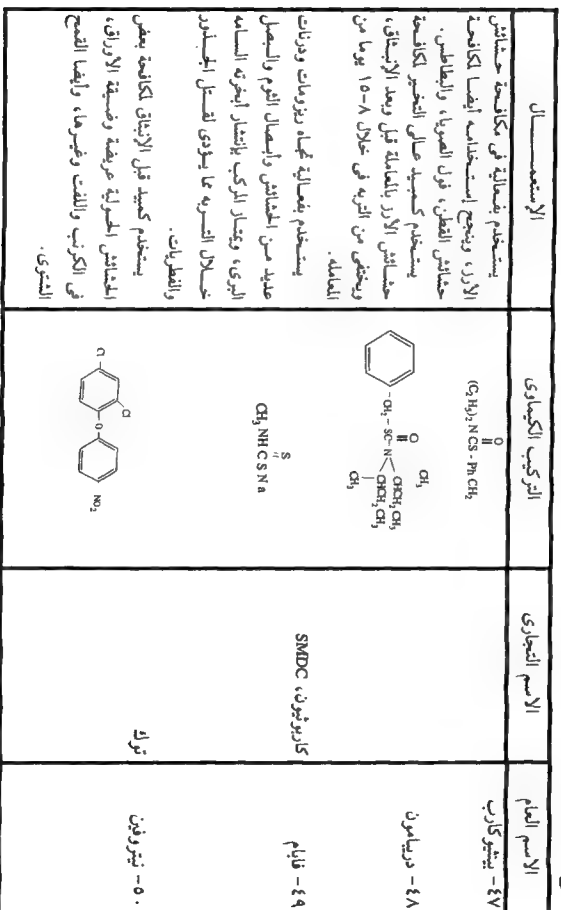 الاسم العام
الاسم التجارى
التركيب الكيماوى
الإستعمـــــــال
٤٧- بينثيوكارب
(C₂ H₅)₂ N CS - Ph CH₂
O
يستخدم بفعالية فى مكافحة حشائش
الأرز، وينجح إستخدامه أيضا لمكافحة
حشائش القطن، فول الصويا، والبطاطس.
٤٨- دريبامون
O
CH₂ - SC - N
CH₃
CHCH₂ CH₃
CHCH₂ CH₃
CH₃
يستخدم كمبيد عالى التخير لمكافحة
حشائش الأرز بالمعاملة قبل وبعد الإنبثاق،
ويختفى من التربه فى خلال ٨-١٥ يوما من
المعامله.
٤٩- فابام
كاربوثيون، SMDC
S
CH₃ NH C S N a
يستخدم بفعالية تجاه ريزومات ودرنات
عديد من الحشائش وأبصال الثوم والبصل
البرى، ويمتاز المركب بإنتشار أبخرته السامه
خلال التربه مما يؤدى لقتل الجذور
والفطريات.
٥٠- نيتروفين
توك
Cl
Cl
O
NO₂
يستخدم كمبيد قبل الإنبثاق لمكافحة بعض
الحشائش الحولية عريضة وضيقة الأوراق،
فى الكرنب واللفت وغيرها، وأيضا القمح
الشتوى.